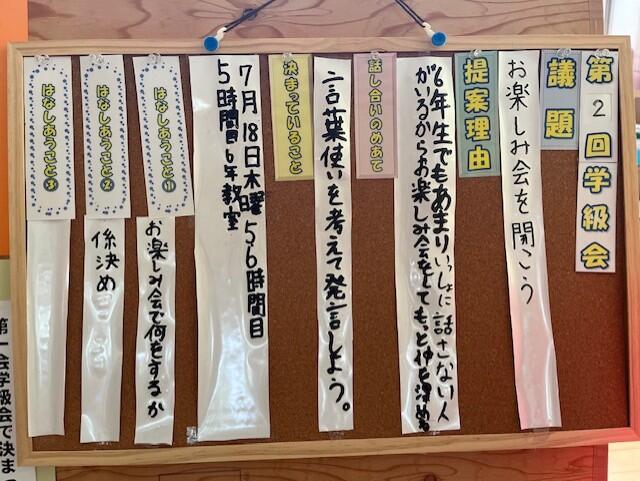 第2回学級会
議題
お楽しみ会を開こう
提案理由
6年生でもあまりいっしょに話さない人
がいるからお楽しみ会をしてもっと仲を深める
話し合いのめあて
言葉使いを考えて発言しよう。
決まっていること
7月18日木曜56時間目
5時間目6年教室
はなしあうこと①
お楽しみ会で何をするか
はなしあうこと②
係決め
はなしあうこと③
第一会学級会で決ま